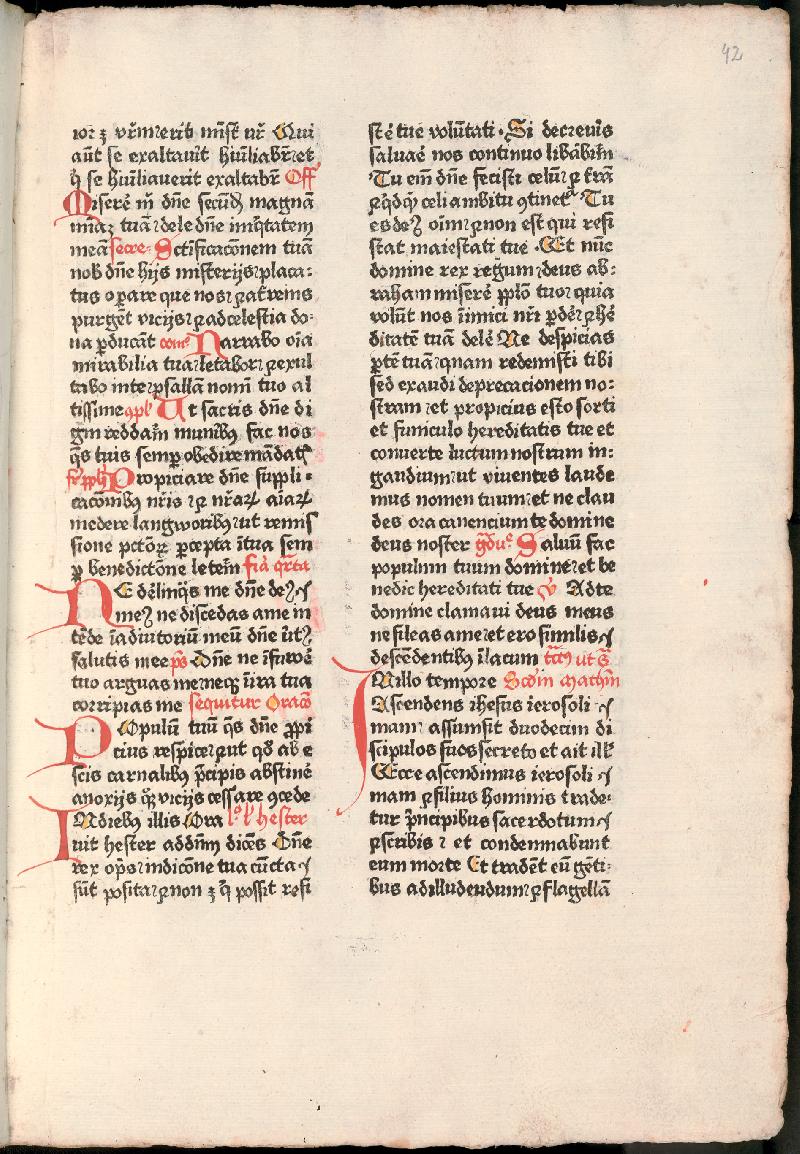 42
ior ⁊ vr̄m erit miñst̄ vr̄ Qui
aūt se exaltauīt hūiliabr̄ et
q̄ se hūiliauerit exaltabr̄ Off
Miserē m̄ dn̄e secūdꝫ magnā
mīaꝫ tuā ⁊ dele dn̄e iniq̄tatem
meā secre᷒ Sctīficacōnem tuā
nob̄ dn̄e hijs misterijs placa-
tus opare que nos ⁊ a tr̄renis
purgēt vicijs ⁊ ad celestia do-
na ꝑducāt com᷒ Narrabo oīa
mirabilia tua letabor ⁊ exul
tabo in te psallā nom̄i tuo al
tissime ꝯpl̄ Ut sacris dn̄e di
gm̄ reddam̄ munibꝰ fac nos
q̄s tuis semꝑ obedire mādat
sr̄ pp̄lm̄ Propiciare dn̄e suppli-
cacōnibꝰ nr̄is ⁊ nr̄aꝝ aīaꝝ
medere langworibꝰ ut remis
sione pctōꝝ ꝑcepta ī tua sem
ꝑ benedictōne letem̄ fīa q̄rta
NE dēlinq̄s me dn̄e deꝰ
meꝰ ne discedas a me in
tēde ī adiutoriū meū dn̄e v̄tꝰ
salutis mee ps̄ Dn̄e ne ī furorē
tuo arguas me neqꝫ ī ira tua
corripias me sequitur Oracō
POpulū tuū q̄s dn̄e ꝓpi
cius respice ⁊ ut qd̄ ab e
scis carnalibꝰ p̄cipis abstinē
a noxijs qꝫ vicijs cessare ꝯcede
IN diebꝰ illis Ora lo l̄ hester
uit hester ad dn̄m dicēs Dn̄e
rex op̄s ī ndicōne tua cūcta
sūt posita ⁊ non ē q̄ possit resi
stē tue volūtati Si decreuis
saluaē nos continuo libābim̄
Tu em̄ dn̄e fecisti celū ⁊ t̄rā
⁊ q̄dqͥd celi ambitu ꝯtinet Tu
es deꝰ oīm ⁊ non est qui resi
stat maiestati tue Et nūc
domine rex regum deus ab-
raham miserē pp̄lo tuo quia
volūt nos īimici nr̄i ꝑdē ⁊ he
ditatē tuā delē Ne despicias
ꝑtē tuā quam redemisti tibi
sed exaudi deprecacionem no-
stram et propicius esto sorti
et funiculo hereditatis tue et
conuerte luctum nostrum in-
gaudium ut viuentes laude
mus nomen tuum et ne clau
des ora canencium te domine
deus noster gͣduͣ Saluū fac
populum tuum domine et be
nedic hereditati tue v᷒ Ad te
domine clamaui deus meus
ne sileas a me et ero similis
descēdentibꝰ ī lacum tc̄tꝰ ut s̄
IN illo tempore Scd̄m mathm̄
Ascendens ihesus ierosoli
mam assumsit duodecim di
scipulos suos secreto et ait ill̄
Ecce ascendimus ierosoli
mam ⁊ filius hominis trade-
tur p̄ncipibus sacerdotum
⁊ scribis ⁊ et condemnabunt
eum morte Et tradēt eū gēti-
bus ad illudendum ⁊ flagellā